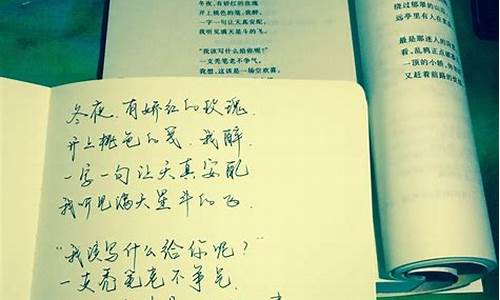 冬夜，有娇红的玫瑰，
开上桃色的笺，我醉，
一字一句让天真安配
我听见满天星斗的飞
“我该写什么给你呢？”
一支秃笔老不争气，
我想，这该是一场空欢喜。
绕过郁翠的山
远亭里有人在
最是那迷人的
看，乱鸦正点破
一顶的小轿，
又赶着前路的
冬夜.有娇红的玫瑰.
开上桃色的笺.我醉.
一字一句让天真安配
我听见满天星斗的飞
“我该写什么给你呢？”
一支秃笔老不争气.